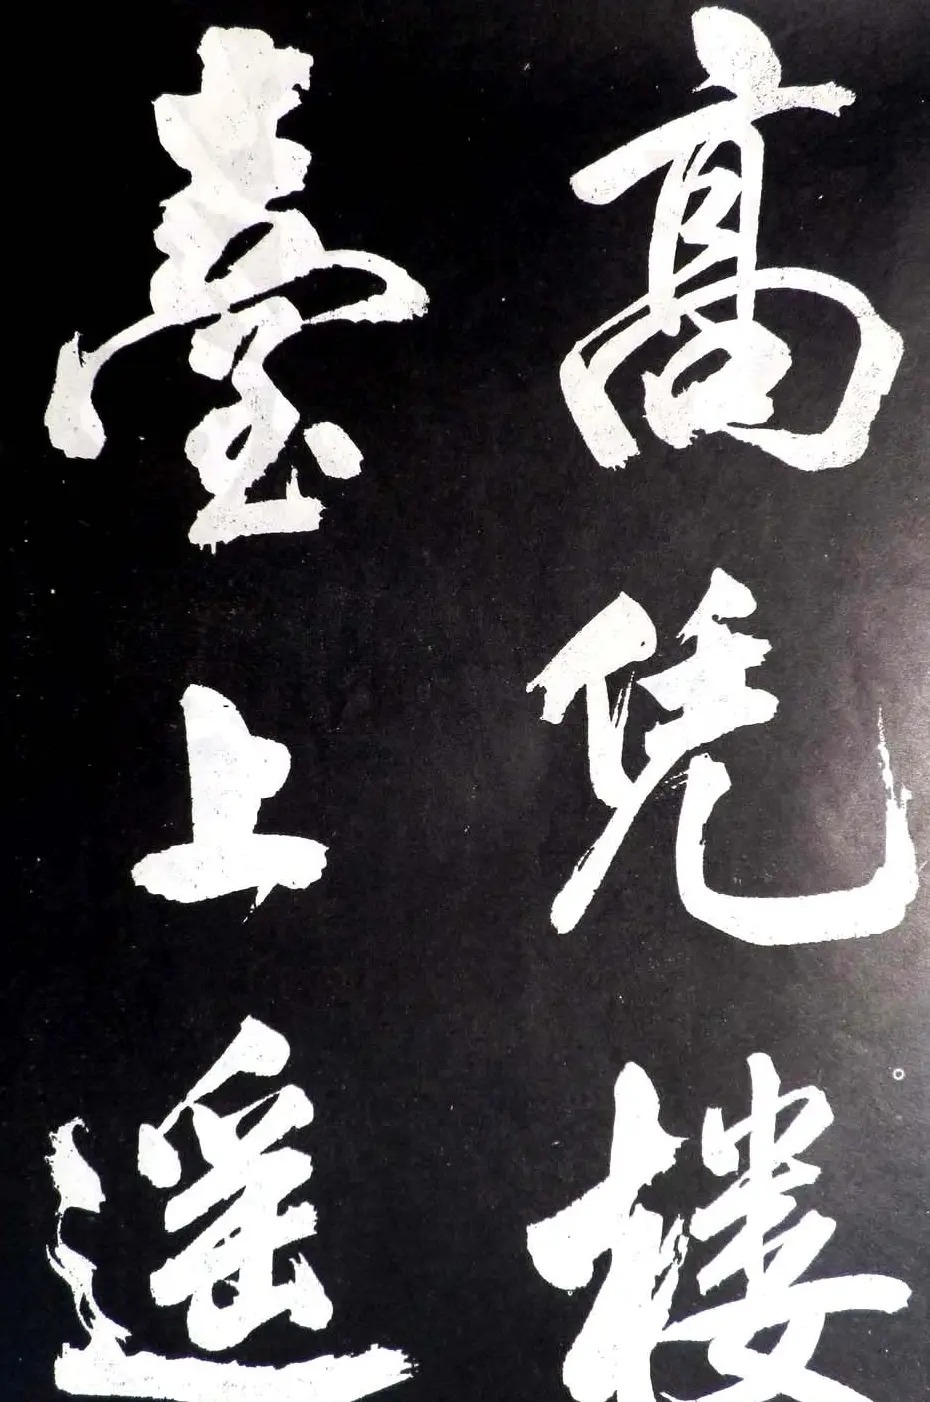 高凭楼
臺上遥